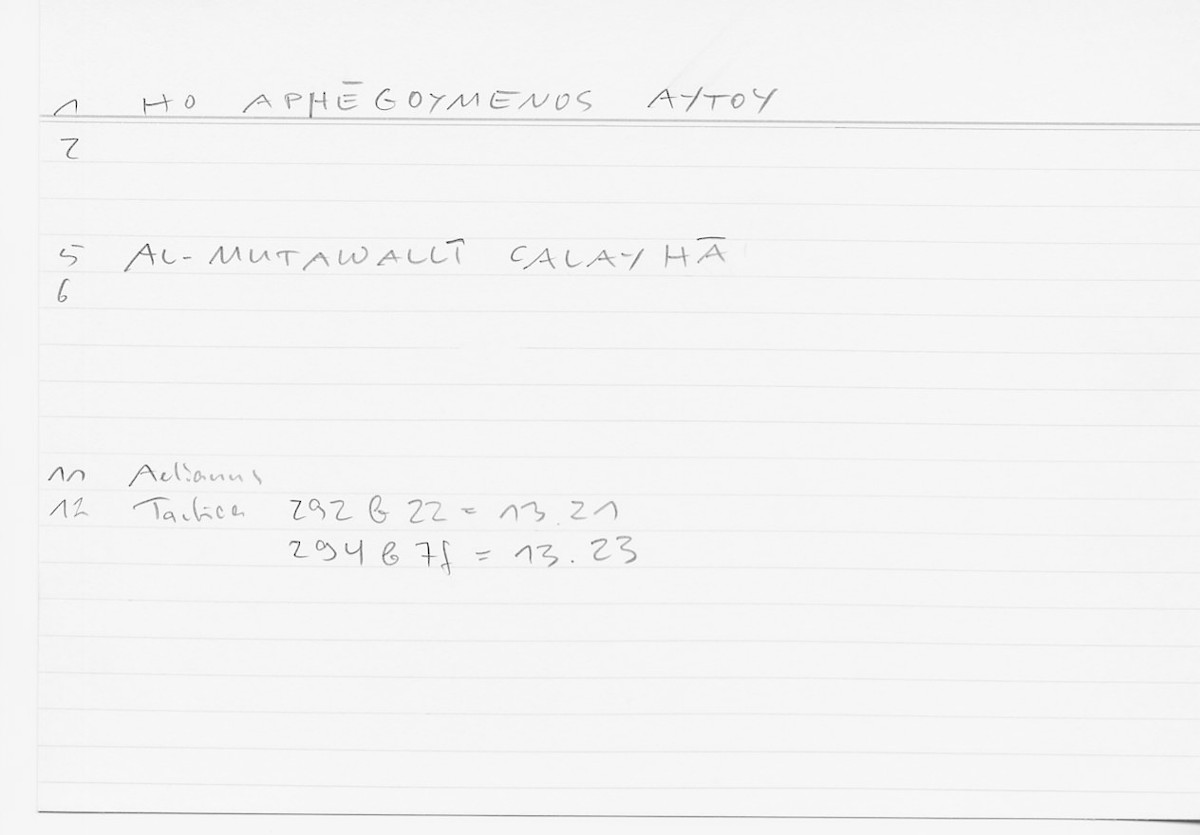 1 HO APHĒGOYMENOS AYTOY
2
5 AL-MUTAWALLĪ CALAYHĀ
6
11 Aelianus
12 Tactica 292 b 22 = 13.21
294 b 7f = 13.23